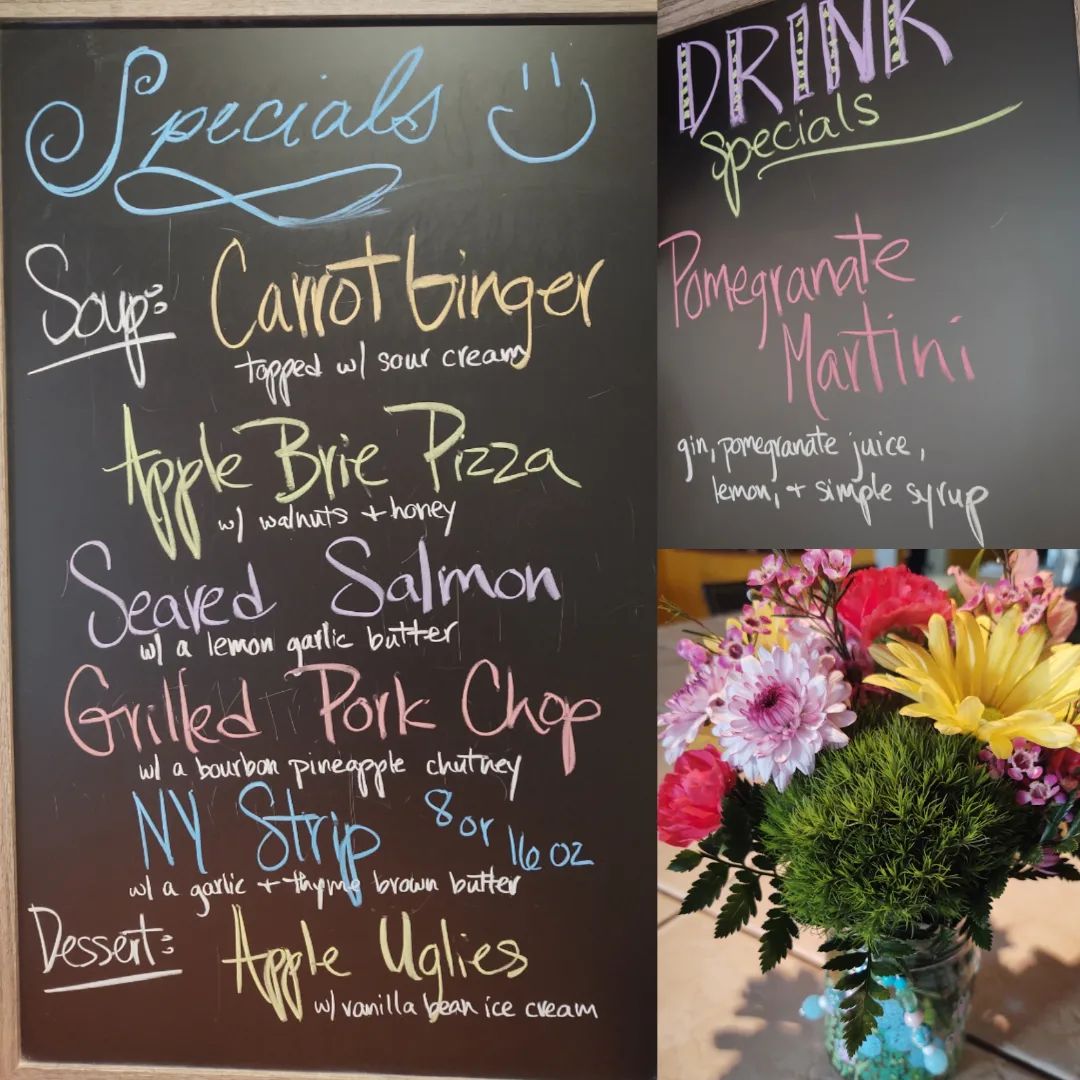 Specials
Soup: Carrot Ginger
topped w/ sour cream
Apple Brie Pizza
w/ walnuts + honey
Seared Salmon
w/ a lemon garlic butter
Grilled Pork Chop
w/ a bourbon pineapple chutney
NY Strip 8 or 16 oz
w/ a garlic + thyme brown butter
Dessert: Apple Uglies
w/ vanilla bean ice cream
DRINK
Specials
Pomegranate
Martini
gin, pomegranate juice,
lemon, + simple syrup